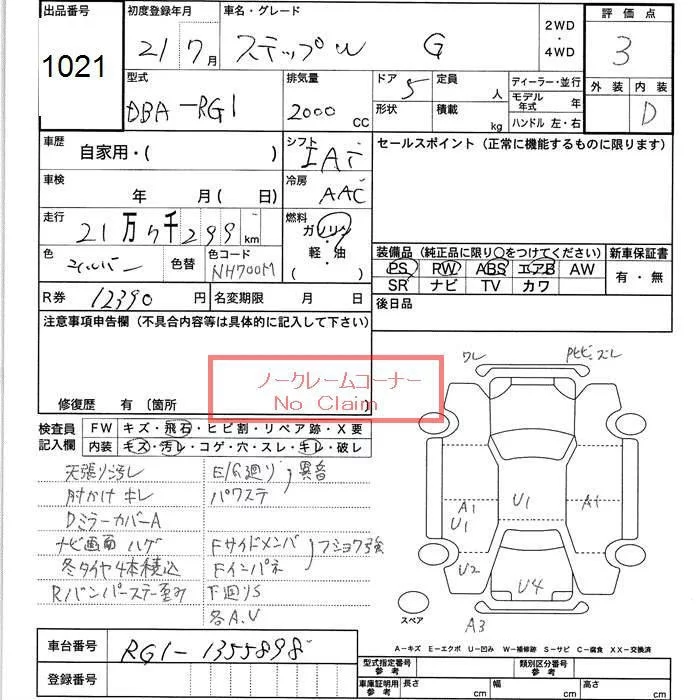 出品番号 初度登録年月 車名・グレード 2WD ・ 4WD 評価点
1021 21 7月 ステップW G 3
型式 排気量 ドア 5 定員 人 ディーラー・並行 外装 内装
DBA-RG1 2000 CC 形状 積載 kg モデル年式 年 D
ハンドル 左・右
車歴 自家用・( ) シフト IAT セールスポイント (正常に機能するものに限ります)
車検 年 月 ( 日) 冷房 AAC
走行 21万7千299 km 燃料 ガソリン
色 シルバー 色替 色コード NH700M 軽・油 ( )
装備品 (純正品に限り○をつけてください) 新車保証書
PS PW ABS エアB AW 有・無
SR ナビ TV カワ
R券 12390 円 名変期限 月 日 後日品
注意事項申告欄 (不具合内容等は具体的に記入して下さい)
ノークレームコーナー
No Claim
修復歴 有 〔箇所 〕
検査員記入欄 FW キズ・飛石・ヒビ割・リペア跡・X要
内装 キズ・汚レ・コゲ・穴・スレ・キレ・破レ
天張り汚レ E/G廻り 異音
肘かけキレ パワステ
DミラーカバーA
ナビ画面ハゲ Fサイドメンバ
冬タイヤ4本積込 Fインパネ
Rバンパーステー歪み 下廻りS
各A.U
ワレ
A1 U1 U1 A1
U2 U4
スペア A3
A-キズ E-エクボ U-凹み W-補修跡 S-サビ C-腐食 XX-交換済
車台番号 RG1-1355898
登録番号
型式指定番号 参考 類別区分番号 参考
車庫証明用 参考 長さ cm 幅 cm 高さ cm